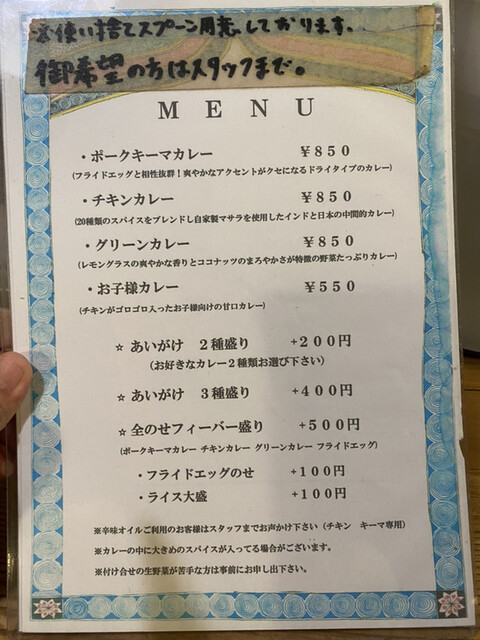 ※使い捨てスプーン用意しております、
御希望の方はスタッフまで。
MENU
・ポークキーマカレー ￥８５０
(フライドエッグと相性抜群！爽やかなアクセントがクセになるドライタイプのカレー)
・チキンカレー ￥８５０
(20種類のスパイスをブレンドし自家製マサラを使用したインドと日本の中間的カレー)
・グリーンカレー ￥８５０
(レモングラスの爽やかな香りとココナッツのまろやかさが特徴の野菜たっぷりカレー)
・お子様カレー ￥５５０
(チキンがゴロゴロ入ったお子様向けの甘口カレー)
☆ あいがけ ２種盛り +２００円
(お好きなカレー２種類お選び下さい)
☆ あいがけ ３種盛り +４００円
☆ 全のせフィーバー盛り +５００円
(ポークキーマカレー チキンカレー グリーンカレー フライドエッグ)
・フライドエッグのせ +１００円
・ライス大盛 +１００円
※辛味オイルご利用のお客様はスタッフまでお声かけ下さい（チキン キーマ専用）
※カレーの中に大きめのスパイスが入ってる場合がございます。
※付け合せの生野菜が苦手な方は事前にお申し出下さい。